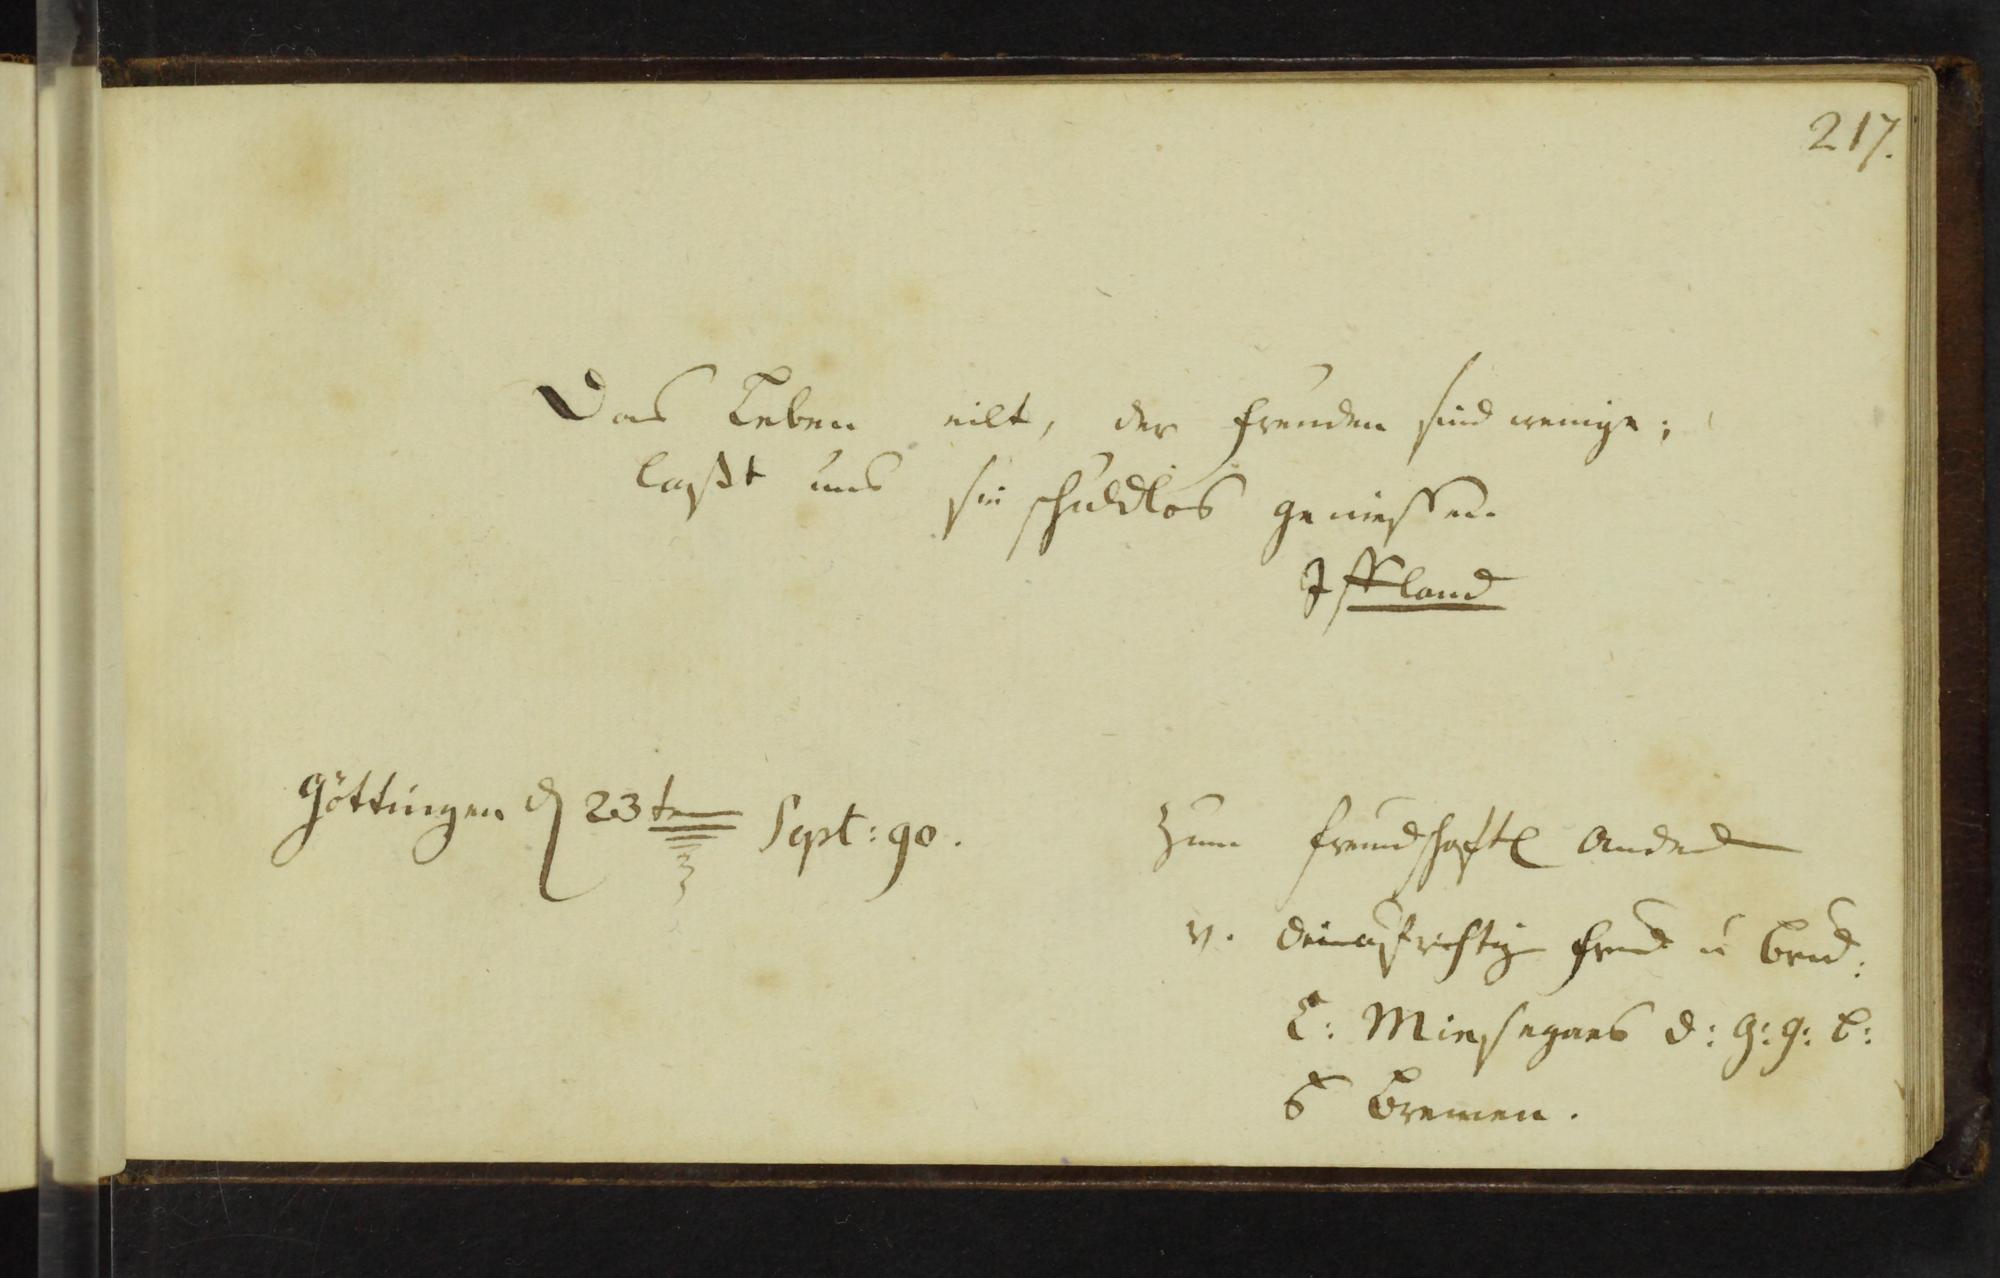 217.
Das Leben eilt, der Freuden sind wenige;
laßt uns sie schuldlos geniessen.
Iffland
Göttingen d 23te Sept: 90.
Zum freundschaftl Andenk
v. dein aufrichtig Freund u Brud:
C: Miesegaes d: G: G: B:
Bremen.